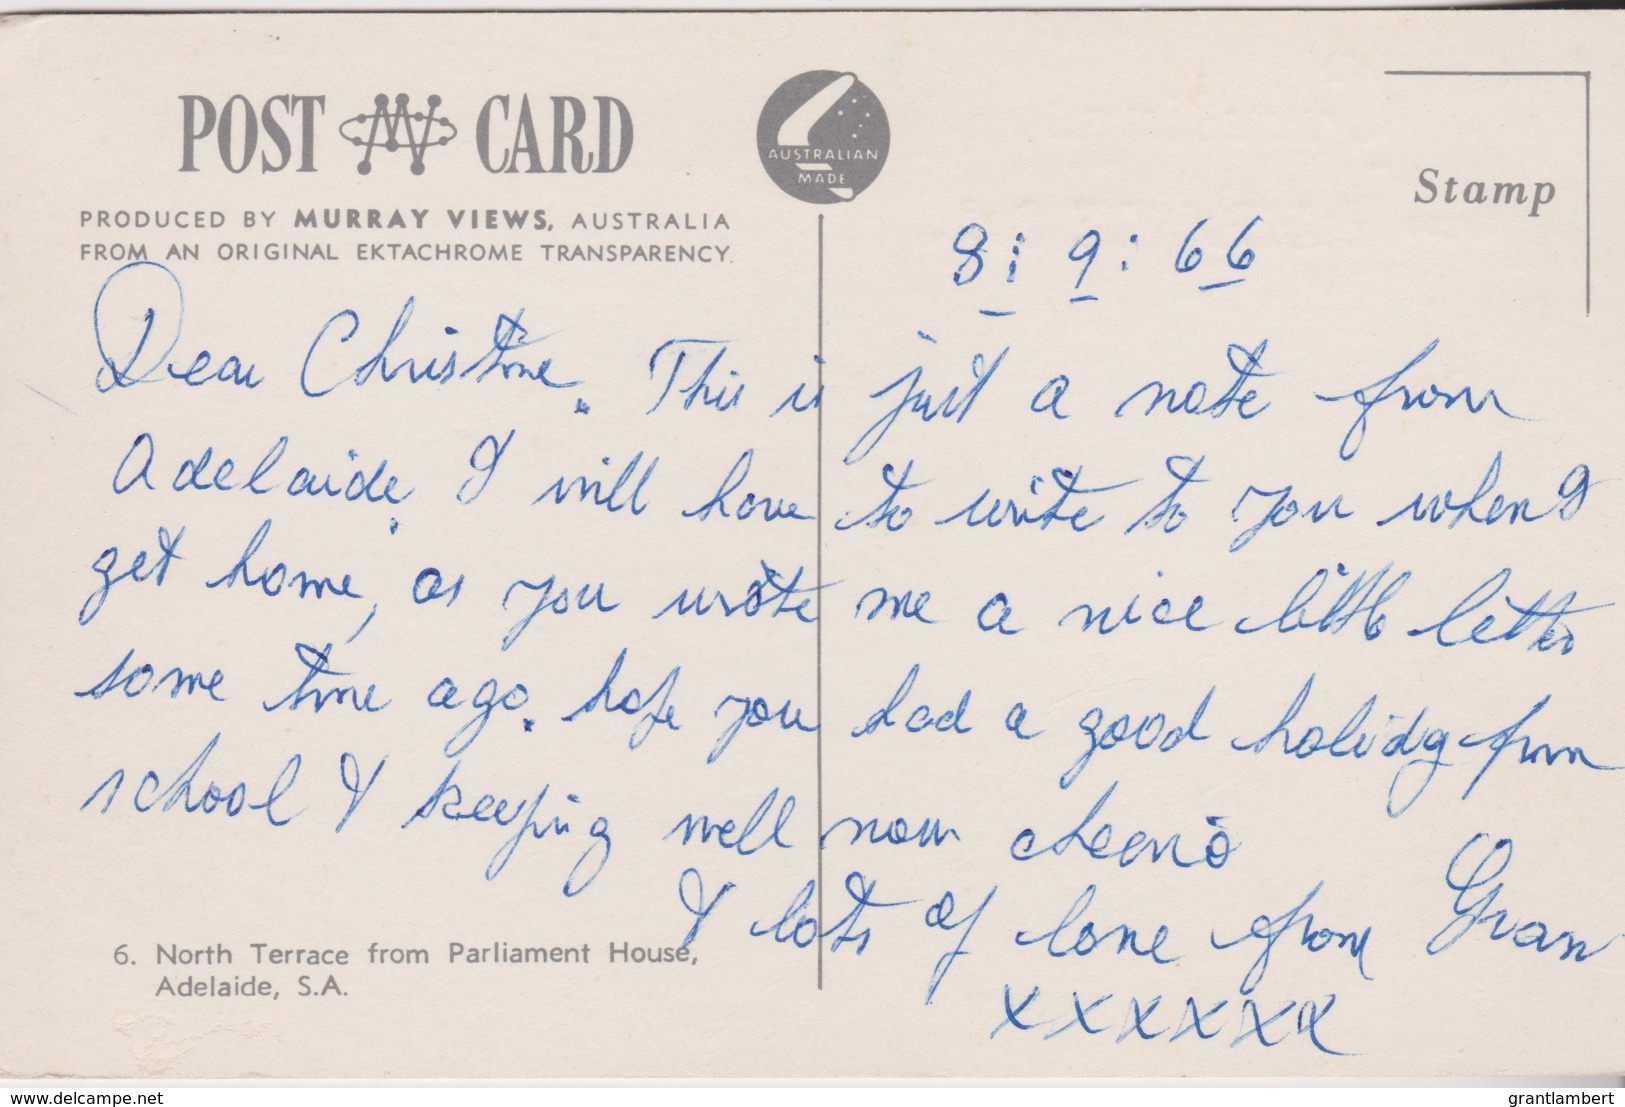 POST CARD
PRODUCED BY MURRAY VIEWS, AUSTRALIA
FROM AN ORIGINAL EKTACHROME TRANSPARENCY.
AUSTRALIAN
MADE
Stamp
8:9:66
Dear Christine. This is just a note from
Adelaide. I will have to write to you when I
get home, as you wrote me a nice little letter
some time ago. hope you had a good holiday from
school & keeping well now cheerio
& lots of love from Gran
xxxxxx
6. North Terrace from Parliament House,
Adelaide, S.A.
www.delcampe.net
grantlambert